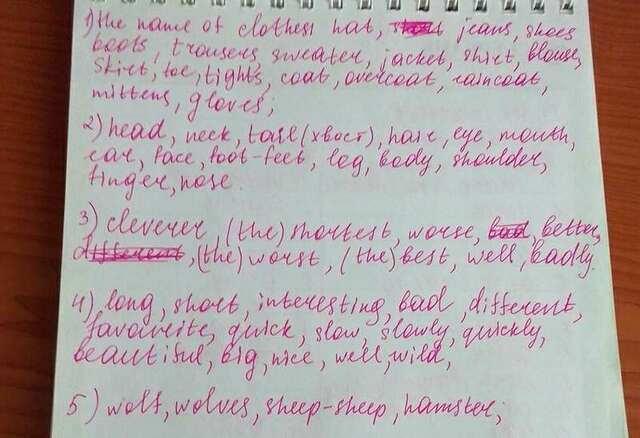 1) the name of clothes: hat, short jeans, shoes
boots, trousers, sweater, jacket, shirt, blouse,
skirt, toe, tights, coat, overcoat, raincoat,
mittens, gloves;
2) head, neck, tail (хвост), hair, eye, mouth,
ear, face, foot-feet, leg, body, shoulder,
finger, nose.
3) cleverer, (the) shortest, worse, bad, better,
different, (the) worst, (the) best, well, badly.
4) long, short, interesting, bad, different,
favourite, quick, slow, slowly, quickly,
beautiful, big, nice, well, wild,
5) wolf, wolves, sheep-sheep, hamster;